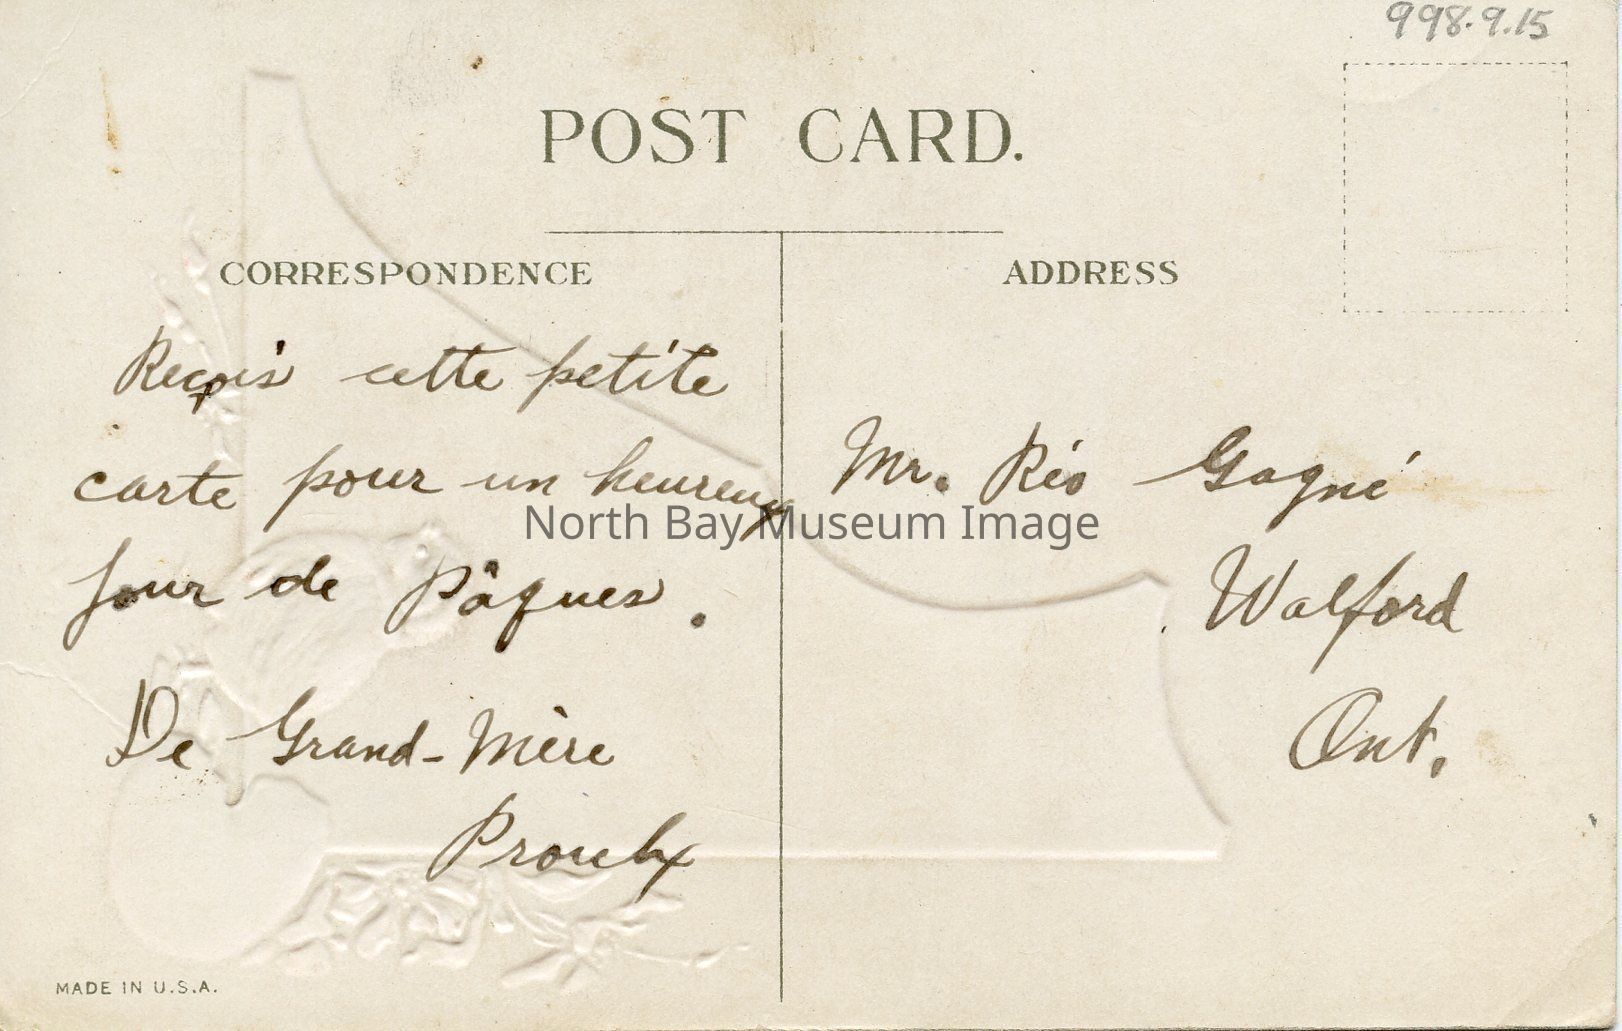 998.9.15
POST CARD.
CORRESPONDENCE
Reçois cette petite
carte pour un heureux
jour de Pâques.
De Grand-Mère
Proulx
ADDRESS
Mr. Réo Gagné
Walford
Ont.
North Bay Museum Image
MADE IN U.S.A.